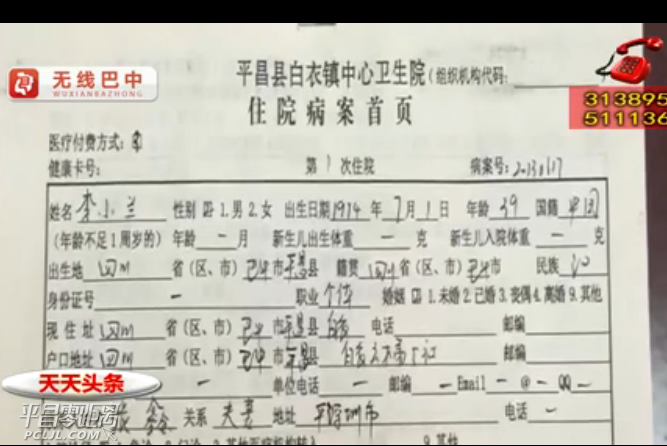 无线巴中
WUXIANBAZHONG
313895
511136
平昌县白衣镇中心卫生院(组织机构代码:
住院病案首页
医疗付费方式:
健康卡号: 第1次住院 病案号:20130617
姓名 李小兰 性别 1.男 2.女 出生日期 1974 年 7 月 1 日 年龄 39 国籍 中国
(年龄不足1周岁的) 年龄 — 月 新生儿出生体重 — 克 新生儿入院体重 — 克
出生地 四川 省(区、市) 巴中 市 平昌 县 籍贯 四川 省(区、市) 巴中 市 民族 汉
身份证号 — 职业 个体 婚姻 1.未婚 2.已婚 3.丧偶 4.离婚 9.其他
现住址 四川 省(区、市) 巴中 市 平昌 县 白衣 电话 邮编
户口地址 四川 省(区、市) 巴中 市 平昌 县 白衣 邮编
— 单位电话 — 邮编 — Email — @ — QQ —
天天头条
关系 夫妻 地址 深圳市 电话 —
平昌零距离
PCLJL.COM
其他医疗机构转入 9.其他